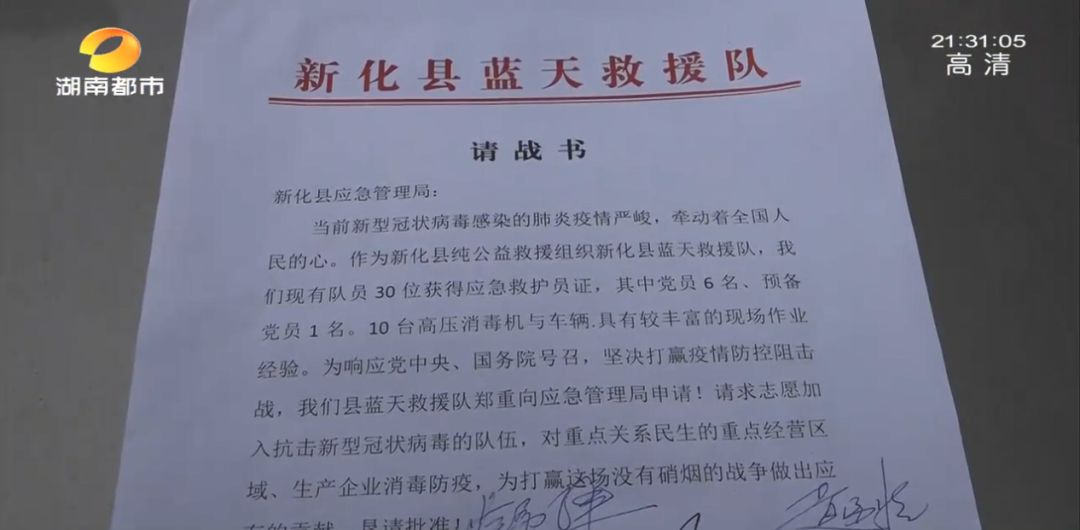 湖南都市
21:31:05
高清
新化县蓝天救援队
请战书
新化县应急管理局：
当前新型冠状病毒感染的肺炎疫情严峻，牵动着全国人
民的心。作为新化县纯公益救援组织新化县蓝天救援队，我
们现有队员30位获得应急救护员证，其中党员6名、预备
党员1名。10台高压消毒机与车辆.具有较丰富的现场作业
经验。为响应党中央、国务院号召，坚决打赢疫情防控阻击
战，我们县蓝天救援队郑重向应急管理局申请！请求志愿加
入抗击新型冠状病毒的队伍，对重点关系民生的重点经营区
域、生产企业消毒防疫，为打赢这场没有硝烟的战争做出应
有的贡献。恳请批准！